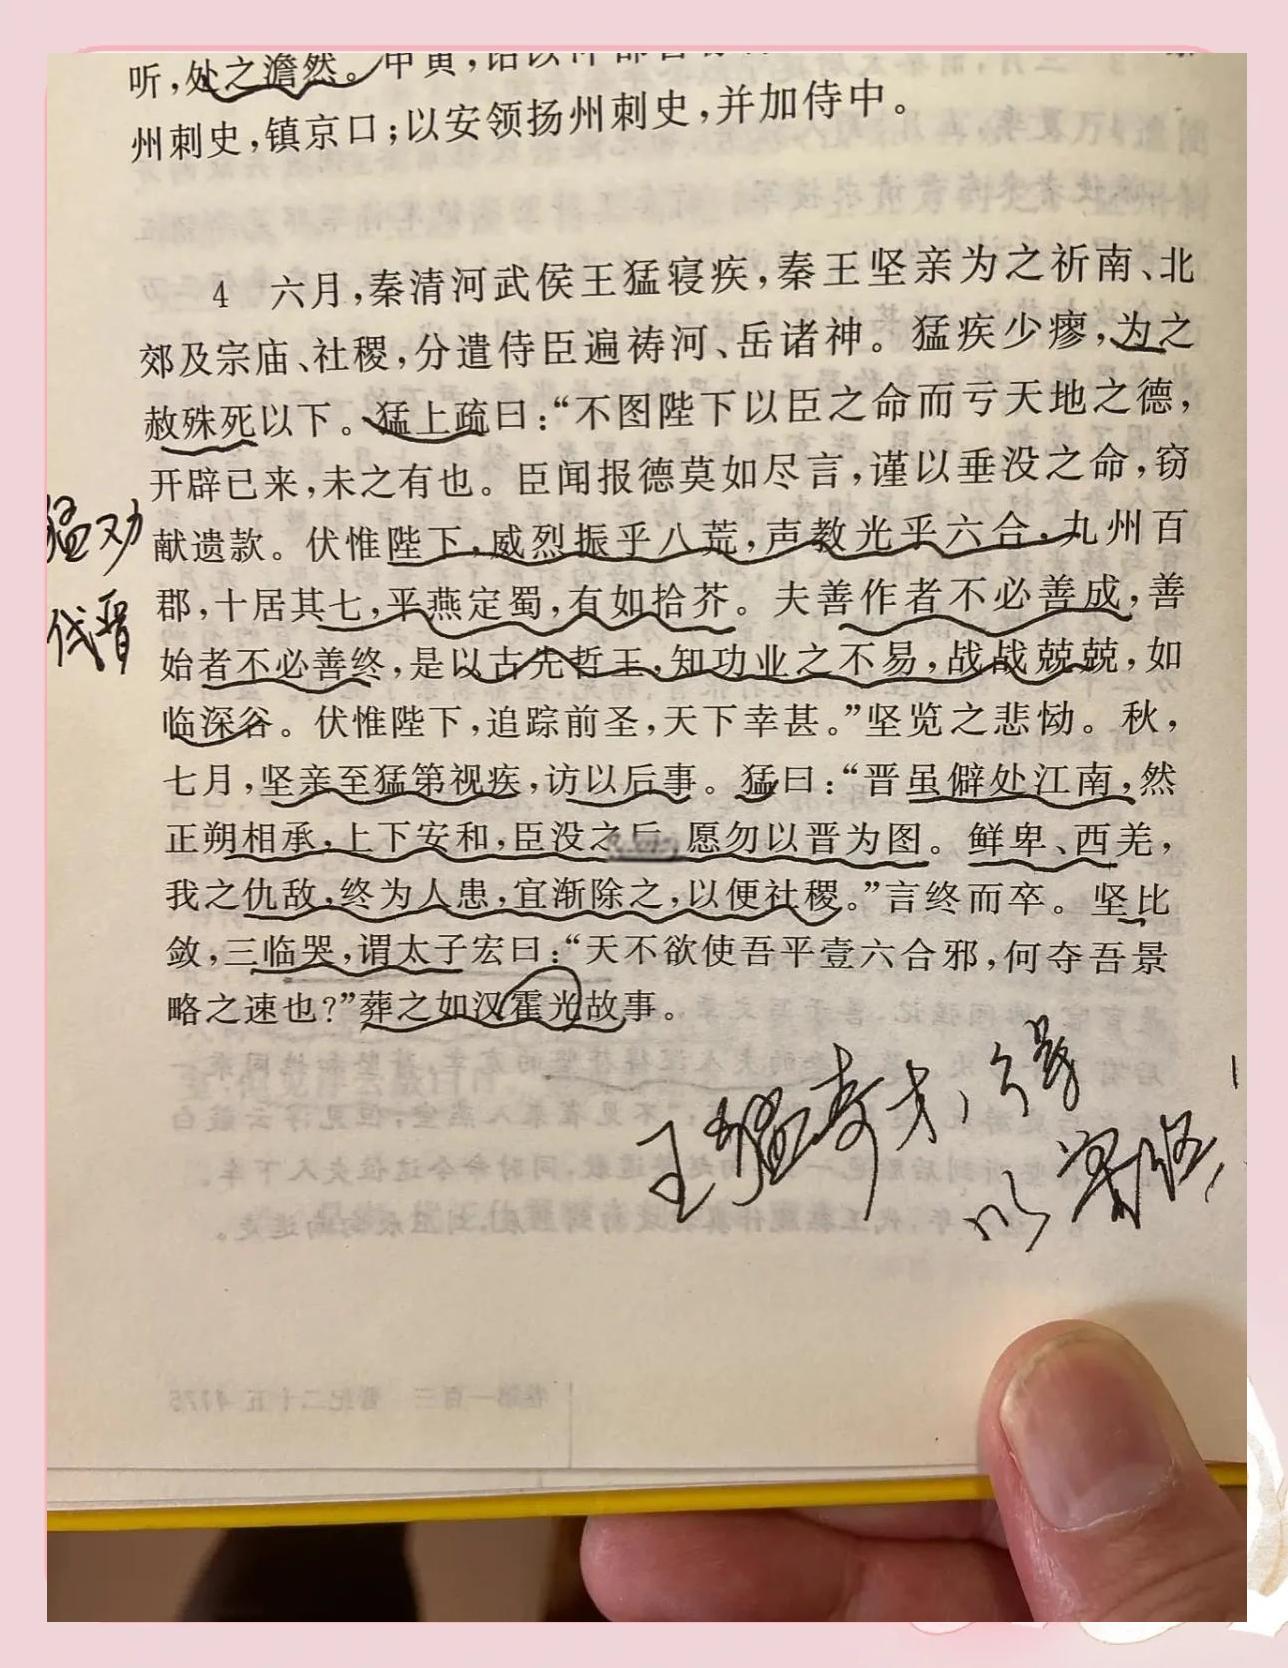 听，处之澹然。甲寅，诏以
州刺史，镇京口；以安领扬州刺史，并加侍中。
4　六月，秦清河武侯王猛寝疾，秦王坚亲为之祈南、北
郊及宗庙、社稷，分遣侍臣遍祷河、岳诸神。猛疾少瘳，为之
赦殊死以下。猛上疏曰：“不图陛下以臣之命而亏天地之德，
开辟已来，未之有也。臣闻报德莫如尽言，谨以垂没之命，窃
献遗款。伏惟陛下，威烈振乎八荒，声教光乎六合，九州百
郡，十居其七，平燕定蜀，有如拾芥。夫善作者不必善成，善
始者不必善终，是以古先哲王，知功业之不易，战战兢兢，如
临深谷。伏惟陛下，追踪前圣，天下幸甚。”坚览之悲恸。秋，
七月，坚亲至猛第视疾，访以后事。猛曰：“晋虽僻处江南，然
正朔相承，上下安和，臣没之后，愿勿以晋为图。鲜卑、西羌，
我之仇敌，终为人患，宜渐除之，以便社稷。”言终而卒。坚比
敛，三临哭，谓太子宏曰：“天不欲使吾平壹六合邪，何夺吾景
略之速也？”葬之如汉霍光故事。
猛劝
伐晋
王猛奇才，
以
卷第一百三　晋纪二十五　4775